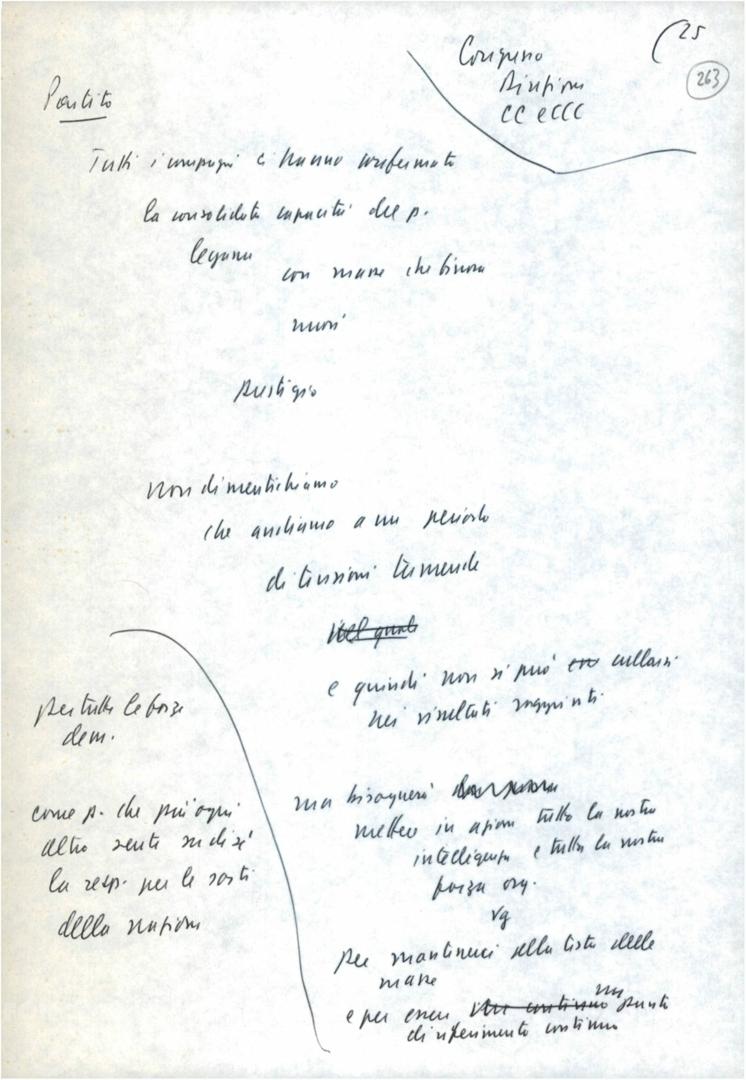 (25
263
Congresso
Direzione
CC e CCC
Partito
Tutti i compagni ci hanno confermato
la consolidata capacità del p.
legame
con masse che
nuovi
prestigio
Non dimentichiamo
che andiamo a un periodo
di tensioni tremende
Nel quale
e quindi non si può cullarsi
nei risultati raggiunti
ma bisognerà
mettere in azione tutta la nostra
intelligenza e tutta la nostra
forza org.
vg
per mantenerci alla testa delle
masse
e per essere un punto
di riferimento continuo
per tutte le forze
dem.
come p. che più ogni
altro sente su di sé
la resp. per le sorti
della nazione